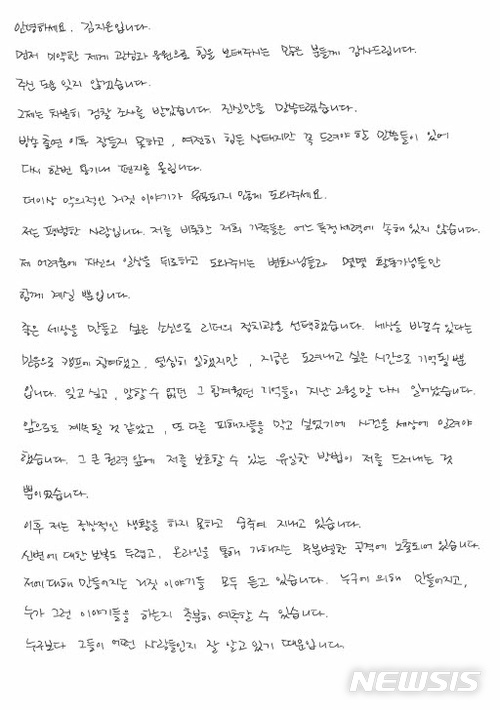 안녕하세요. 김지은입니다.
먼저 미약한 제게 관심과 응원으로 힘을 보태주시는 많은 분들께 감사드립니다.
주신 도움 잊지 않겠습니다.
그제는 차분히 검찰 조사를 받았습니다. 진실만을 말씀드렸습니다.
방송 출연 이후 잠들지 못하고, 여전히 힘든 상태지만 꼭 드려야 할 말씀들이 있어
다시 한번 용기내 편지를 올립니다.
더이상 악의적인 거짓 이야기가 유포되지 않게 도와주세요.
저는 평범한 사람입니다. 저를 비롯한 저희 가족들은 어느 특정 세력에 속해 있지 않습니다.
제 어려움에 자신의 일상을 뒤로하고 도와주시는 변호사님들과 몇몇 활동가님들만
함께 계실 뿐입니다.
좋은 세상을 만들고 싶은 소신으로 리더의 정치관을 선택했습니다. 세상을 바꿀수 있다는
믿음으로 캠프에 참여했고, 열심히 일했지만, 지금은 도려내고 싶은 시간으로 기억될 뿐
입니다. 잊고 싶고, 말할 수 없던 그 힘겨웠던 기억들이 지난 2월말 다시 일어났습니다.
앞으로도 계속될 것 같았고, 또 다른 피해자들을 막고 싶었기에 사건을 세상에 알려야
했습니다. 그 큰 권력 앞에 저를 보호할 수 있는 유일한 방법이 저를 드러내는 것
뿐이었습니다.
이후 저는 정상적인 생활을 하지 못하고 숨죽여 지내고 있습니다.
신변에 대한 보복도 두렵고, 온라인을 통해 가해지는 무분별한 공격에 노출되어 있습니다.
저에 대해 만들어지는 거짓 이야기들 모두 듣고 있습니다. 누구에 의해 만들어지고,
누가 그런 이야기들을 하는지 충분히 예측할 수 있습니다.
누구보다 그들이 어떤 사람들인지 잘 알고 있기 때문입니다.
NEWSIS